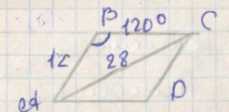 B 120° C
12 28
A D